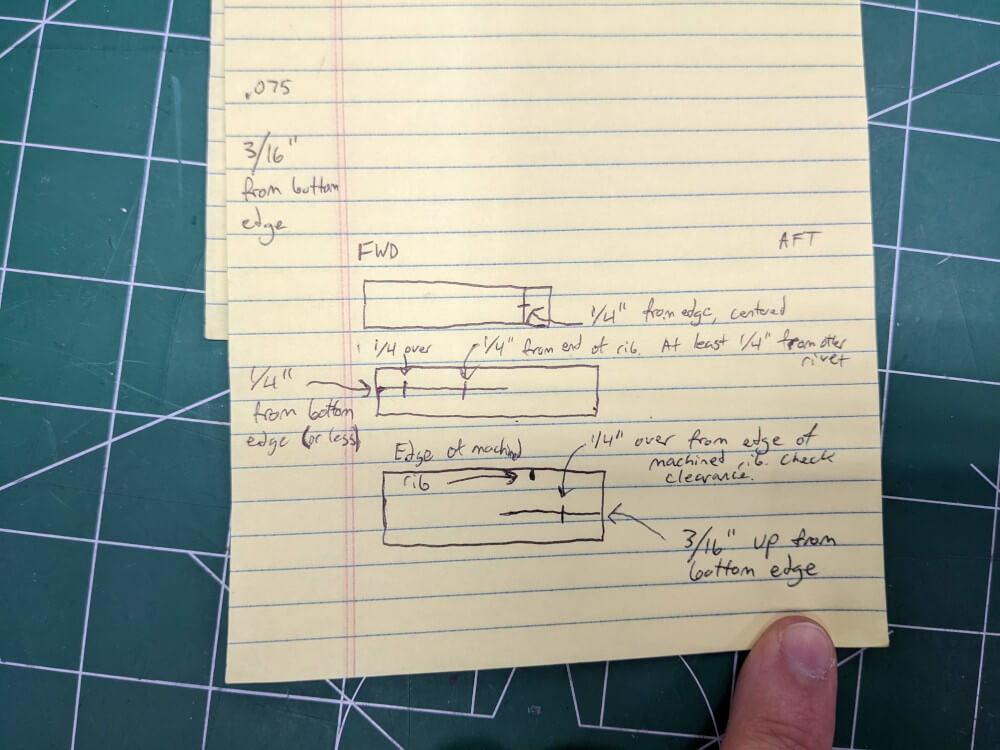 .075
3/16"
from bottom
edge
FWD
AFT
1/4" from edge, centered
1/4 over
1/4" from end of rib. At least 1/4" from other
rivet
1/4"
from bottom
edge (or less)
Edge of machined
rib
1/4" over from edge of
machined rib. Check
clearance.
3/16" up from
bottom edge